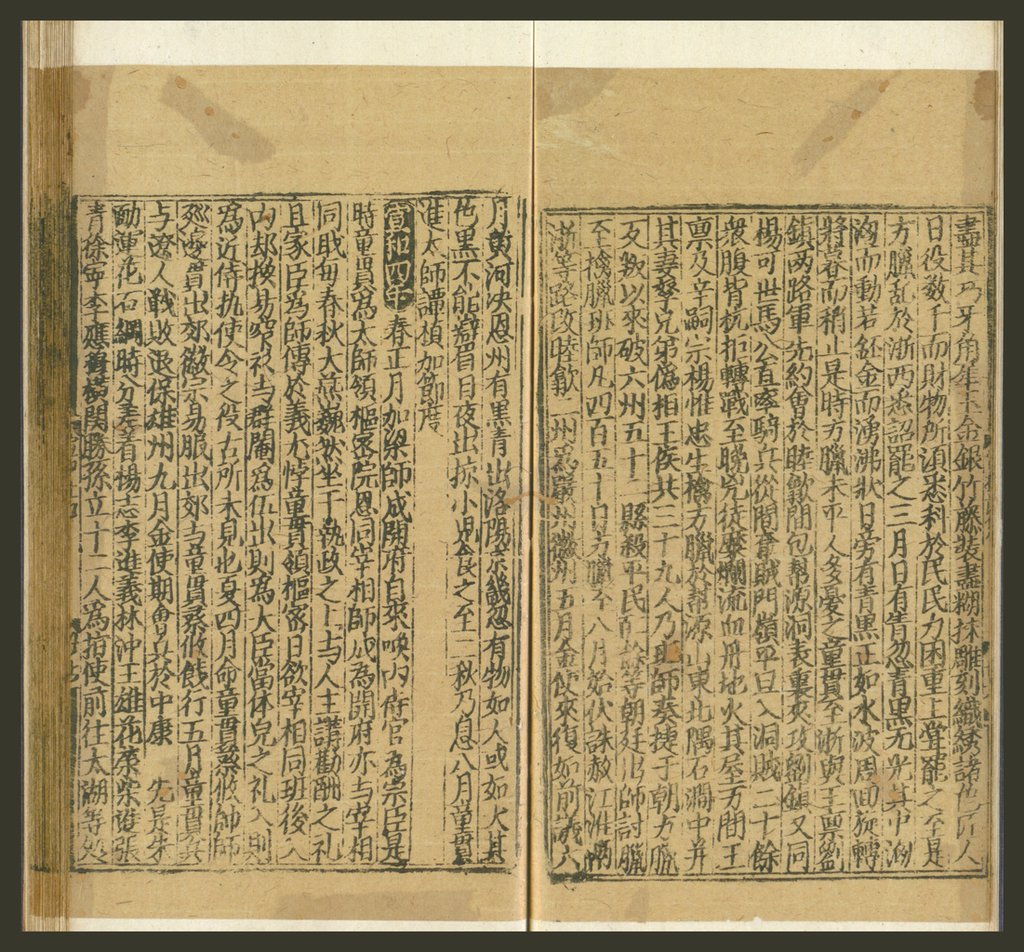 盡其巧牙角犀玉金銀竹藤裝畫糊抹雕刻織綉諸色匠人
日役数千而財物所湏悉科於民民力困重上甞罷之至是
方臘乱於浙西悉詔罷之三月日有眚忽青黑无光其中洶
洶而動若鉟金而湧沸狀日旁有青黑正如水波周回旋轉
將暮而稍止是時方臘未平人多憂之童貫至浙與王禀劉
鎮两路軍先約會於睦歙間包幇源洞表裏夾攻劉鎮又同
楊可世馬公直率騎兵從間奪賊門嶺平旦入洞賊二十餘
衆腹背抗拒轉戰至晚兇徒糜爛流血丹地火其屋万間王
禀及辛嗣宗楊惟忠生擒方臘於幇源山東北隅石澗中并
其妻孥兄弟僞相王侯共三十九人乃班師奏捷于朝方臘
反叛以來破六州五十二縣殺平民 等朝廷出師討臘
至擒臘班師凡四百五十日方臘至八月始伏誅赦江淮兩
浙等路改睦歙二州爲嚴州徽州五月金使來復如前議六
月黄河决恩州有黒青出洛陽京畿忽有物如人或如犬其
色黒不能辯眉目夜出掠小児食之至二秋乃息八月童貫
進太師譚稹加節度
宣和四年 春正月加梁師成開府自來喚内侍官為宗臣是
時童貫為太師領樞密院恩同宰相師成為開府亦与宰相
同戝每春秋大燕巍然坐于執政之上与人主講勸酬之礼
且家臣為師傅於義尤悖童貫領樞密日欲宰相同班後入
内却換易窄衫与群閹爲伍出則爲大臣當体皃之礼入則
為近侍执使令之役古所未見也夏四月命童貫蔡攸帥師
廵邊貫出郊徽宗易服出郊与童貫蔡攸餞行五月童貫兵
与遼人戰敗退保雄州九月金使期會兵於中康 先是朱
勔運花石綱時分差着楊志李進義林沖王雄花榮柴進張
青徐寕李應穆橫関勝孫立十二人爲指使前往太湖等处